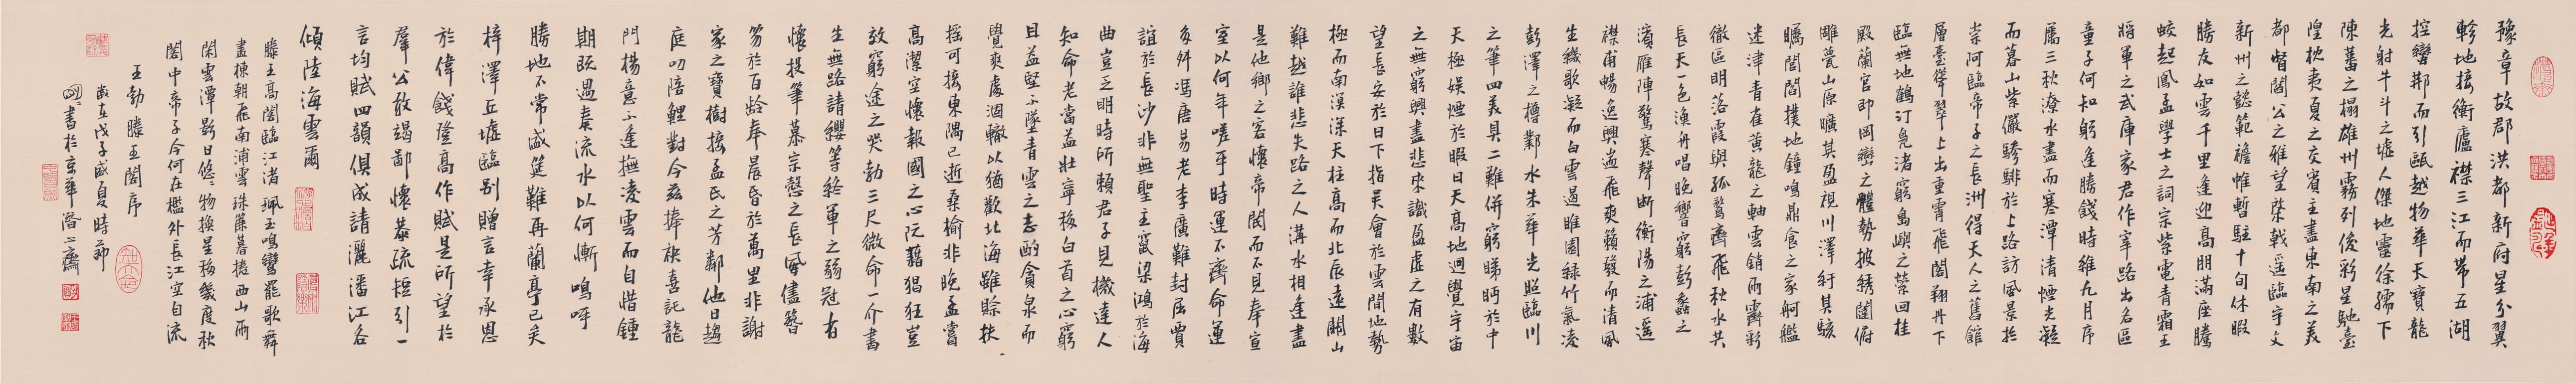 豫章故郡洪都新府星分翼
軫地接衡廬襟三江而帶五湖
控蠻荆而引甌越物華天寶龍
光射牛斗之墟人傑地靈徐孺下
陳蕃之榻雄州霧列俊彩星馳臺
隍枕夷夏之交賓主盡東南之美
都督閻公之雅望棨戟遥臨宇文
新州之懿範襜帷暫駐十旬休暇
勝友如雲千里逢迎高朋滿座騰
蛟起鳳孟學士之詞宗紫電青霜王
將軍之武庫家君作宰路出名區
童子何知躬逢勝餞時維九月序
屬三秋潦水盡而寒潭清煙光凝
而暮山紫儼驂騑於上路訪風景於
崇阿臨帝子之長洲得天人之舊館
層臺聳翠上出重霄飛閣翔丹下
臨無地鶴汀鳧渚窮島嶼之縈回桂
殿蘭宫即岡巒之體勢披綉闥俯
雕甍山原曠其盈視川澤紆其駭
矚閭閻撲地鐘鳴鼎食之家舸艦
迷津青雀黄龍之軸雲銷雨霽彩
徹區明落霞與孤鶩齊飛秋水共
長天一色漁舟唱晚響窮彭蠡之
濱雁陣驚寒聲斷衡陽之浦遥
襟甫暢逸興遄飛爽籟發而清風
生纖歌凝而白雲遏睢園緑竹氣凌
彭澤之樽鄴水朱華光照臨川
之筆四美具二難併窮睇眄於中
天極娱煙於暇日天高地迥覺宇宙
之無窮興盡悲來識盈虚之有數
望長安於日下指吴會於雲間地勢
極而南溟深天柱高而北辰遠關山
難越誰悲失路之人溝水相逢盡
是他鄉之客懷帝閽而不見奉宣
室以何年嗟乎時運不齊命運
多舛馮唐易老李廣難封屈賈
誼於長沙非無聖主竄梁鴻於海
曲豈乏明時所賴君子見機達人
知命老當益壯寧移白首之心窮
且益堅不墜青雲之志酌貪泉而
覺爽處涸轍以猶歡北海雖賒扶
摇可接東隅已逝桑榆非晚孟嘗
高潔空懷報國之心阮藉猖狂豈
效窮途之哭勃三尺微命一介書
生無路請纓等終軍之弱冠有
懷投筆慕宗慤之長風儘簪
笏於百齡奉晨昏於萬里非謝
家之寶樹接孟氏之芳鄰他日趨
庭叨陪鯉對今兹捧袂喜託龍
門楊意不逢撫凌雲而自惜鍾
期既遇奏流水以何慚嗚呼
勝地不常盛筵難再蘭亭已矣
梓澤丘墟臨别贈言幸承恩
於偉餞登高作賦是所望於
羣公敢竭鄙懷恭疏短引一
言均賦四韻俱成請灑潘江各
傾陸海雲爾
滕王高閣臨江渚珮玉鳴鸞罷歌舞
畫棟朝飛南浦雲珠簾暮捲西山雨
閑雲潭影日悠悠物換星移幾度秋
閣中帝子今何在檻外長江空自流
王勃滕王閣序
歲在戊子盛夏時節
書於京華潛心齋